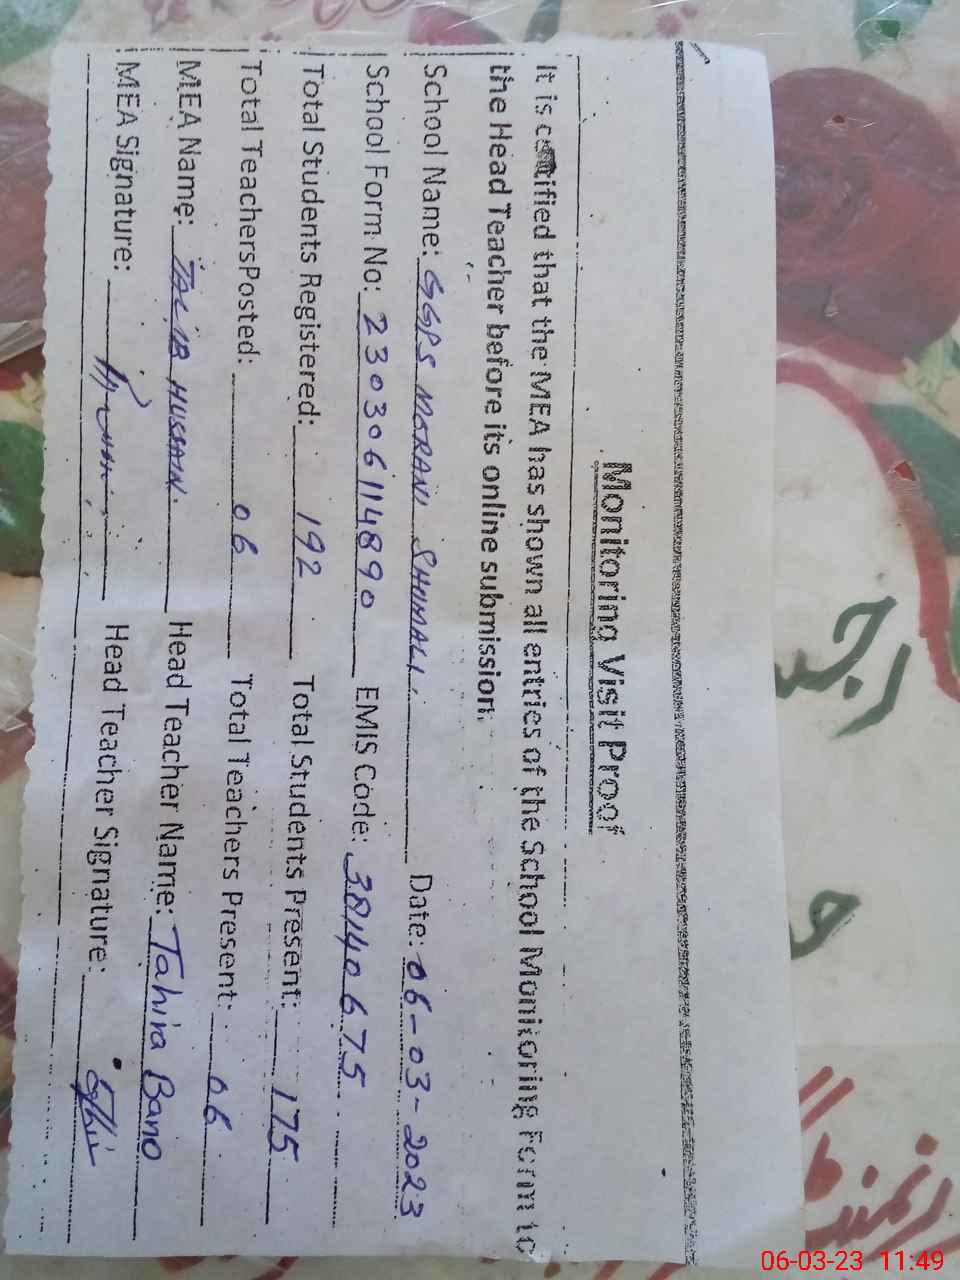 Monitoring Visit Proof
It is certified that the MEA has shown all entries of the School Monitoring Form to
the Head Teacher before its online submission.
School Name: GGPS MERANI SHUMALI. Date: 06-03-2023
School Form No: 2303061148 90 EMIS Code: 38140675
Total Students Registered: 192 Total Students Present: 175
Total TeachersPosted: 06 Total Teachers Present: 06
MEA Name: TALIB HUSSAIN. Head Teacher Name: Tahira Bano
MEA Signature: Head Teacher Signature:
06-03-23 11:49